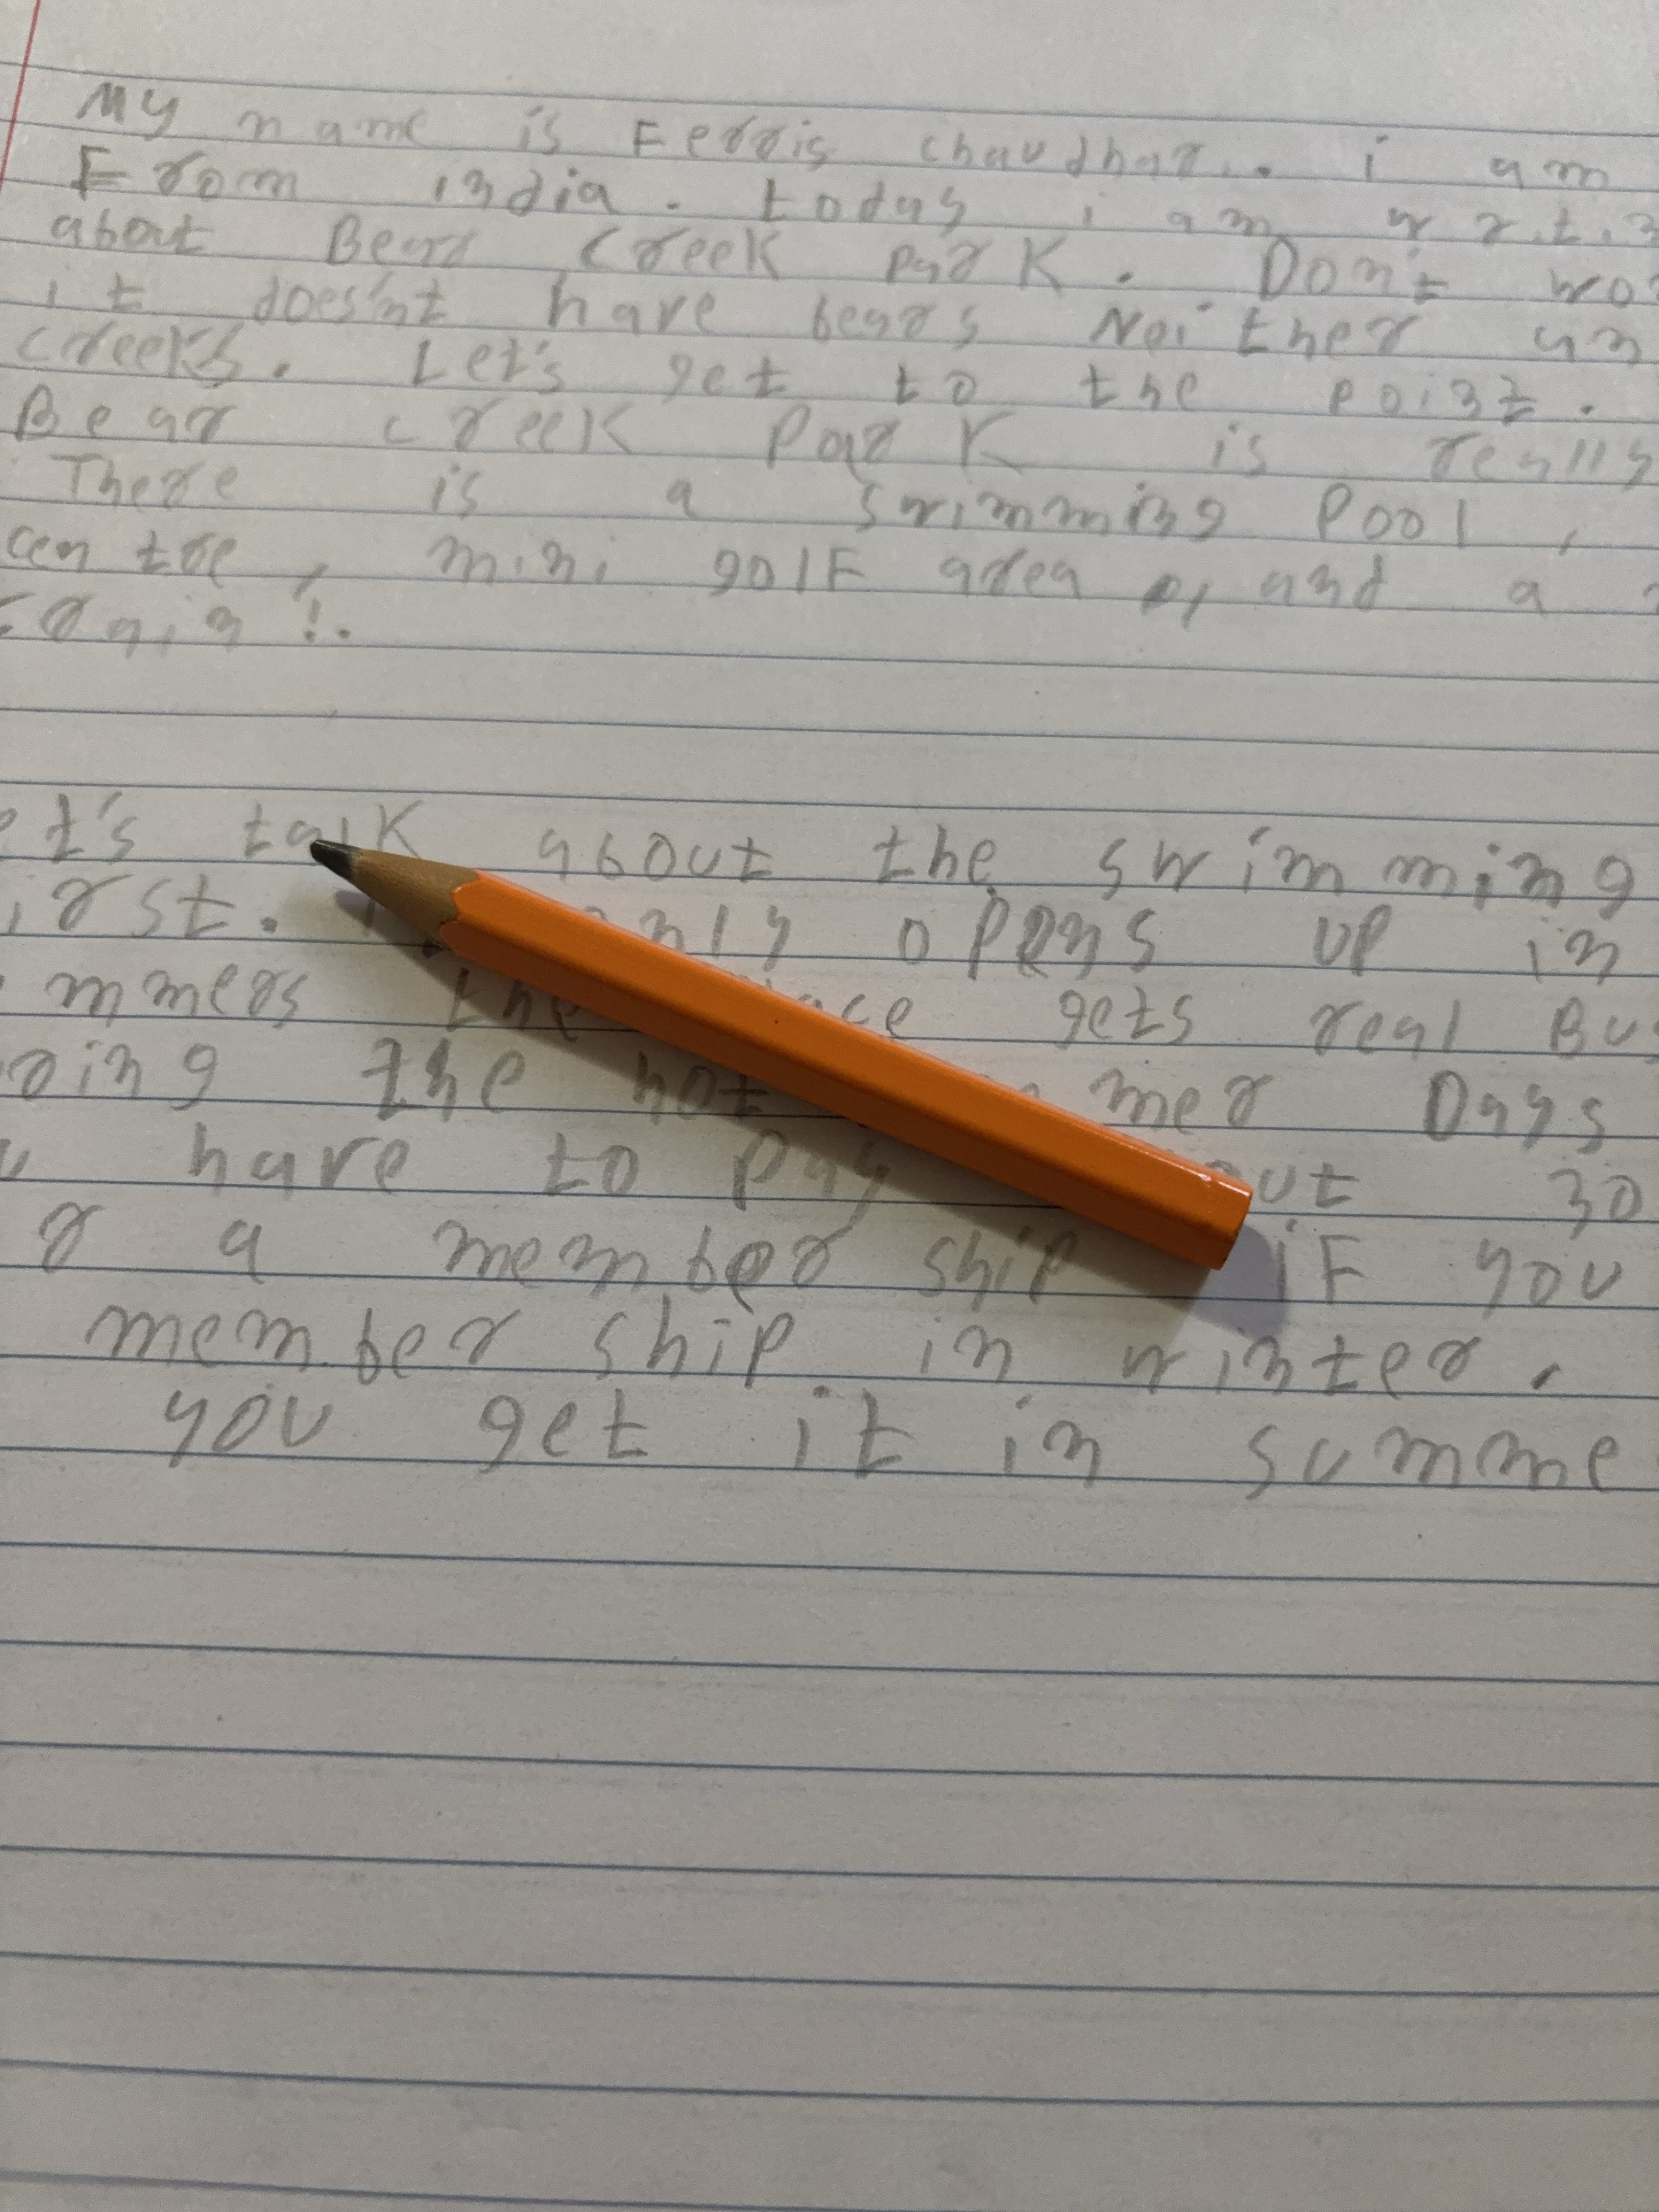 My name is Ferris chaudhar.. i am
From india. today i am
about Bear Creek park. Don't
it does'nt have bears Neither
creeks. Let's get to the point.
Bear creek Park is really
There is a swimming Pool,
centre, mini golF area, and a
!.
talk about the swimming
opens up in
the gets real
the hot Days
have to pay 30
a member ship iF you
member ship in winter.
you get it in